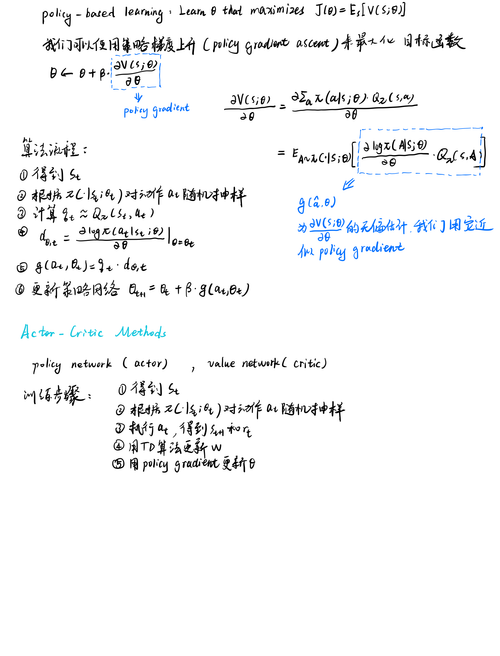 policy-based learning: Learn θ that maximizes J(θ)=E_s[V(s;θ)]
我们可以使用策略梯度上升(policy gradient ascent)来最大化 目标函数
θ ← θ + β · ∂V(s;θ)/∂θ
policy gradient
∂V(s;θ)/∂θ = ∂Σ_a π(a|s;θ)·Q_π(s,a)/∂θ
= E_A~π(·|s;θ)[∂logπ(A|s;θ)/∂θ · Q_π(s,A)]
g(â,θ)
为∂V(s;θ)/∂θ的无偏估计,我们用它近
似 policy gradient
算法流程:
① 得到 s_t
② 根据 π(·|s_t;θ_t) 对动作 a_t 随机抽样
③ 计算 q_t ≈ Q_π(s_t,a_t)
④ d_θ,t = ∂logπ(a_t|s_t;θ)/∂θ |θ=θ_t
⑤ g(a_t,θ_t) = q_t · d_θ,t
⑥ 更新策略网络 θ_t+1 = θ_t + β·g(a_t,θ_t)
Actor-Critic Methods
policy network (actor) , value network (critic)
训练步骤:
① 得到 s_t
② 根据 π(·|s_t;θ_t) 对动作 a_t 随机抽样
③ 执行 a_t, 得到 s_t+1 和 r_t
④ 用TD算法更新 w
⑤ 用 policy gradient 更新 θ